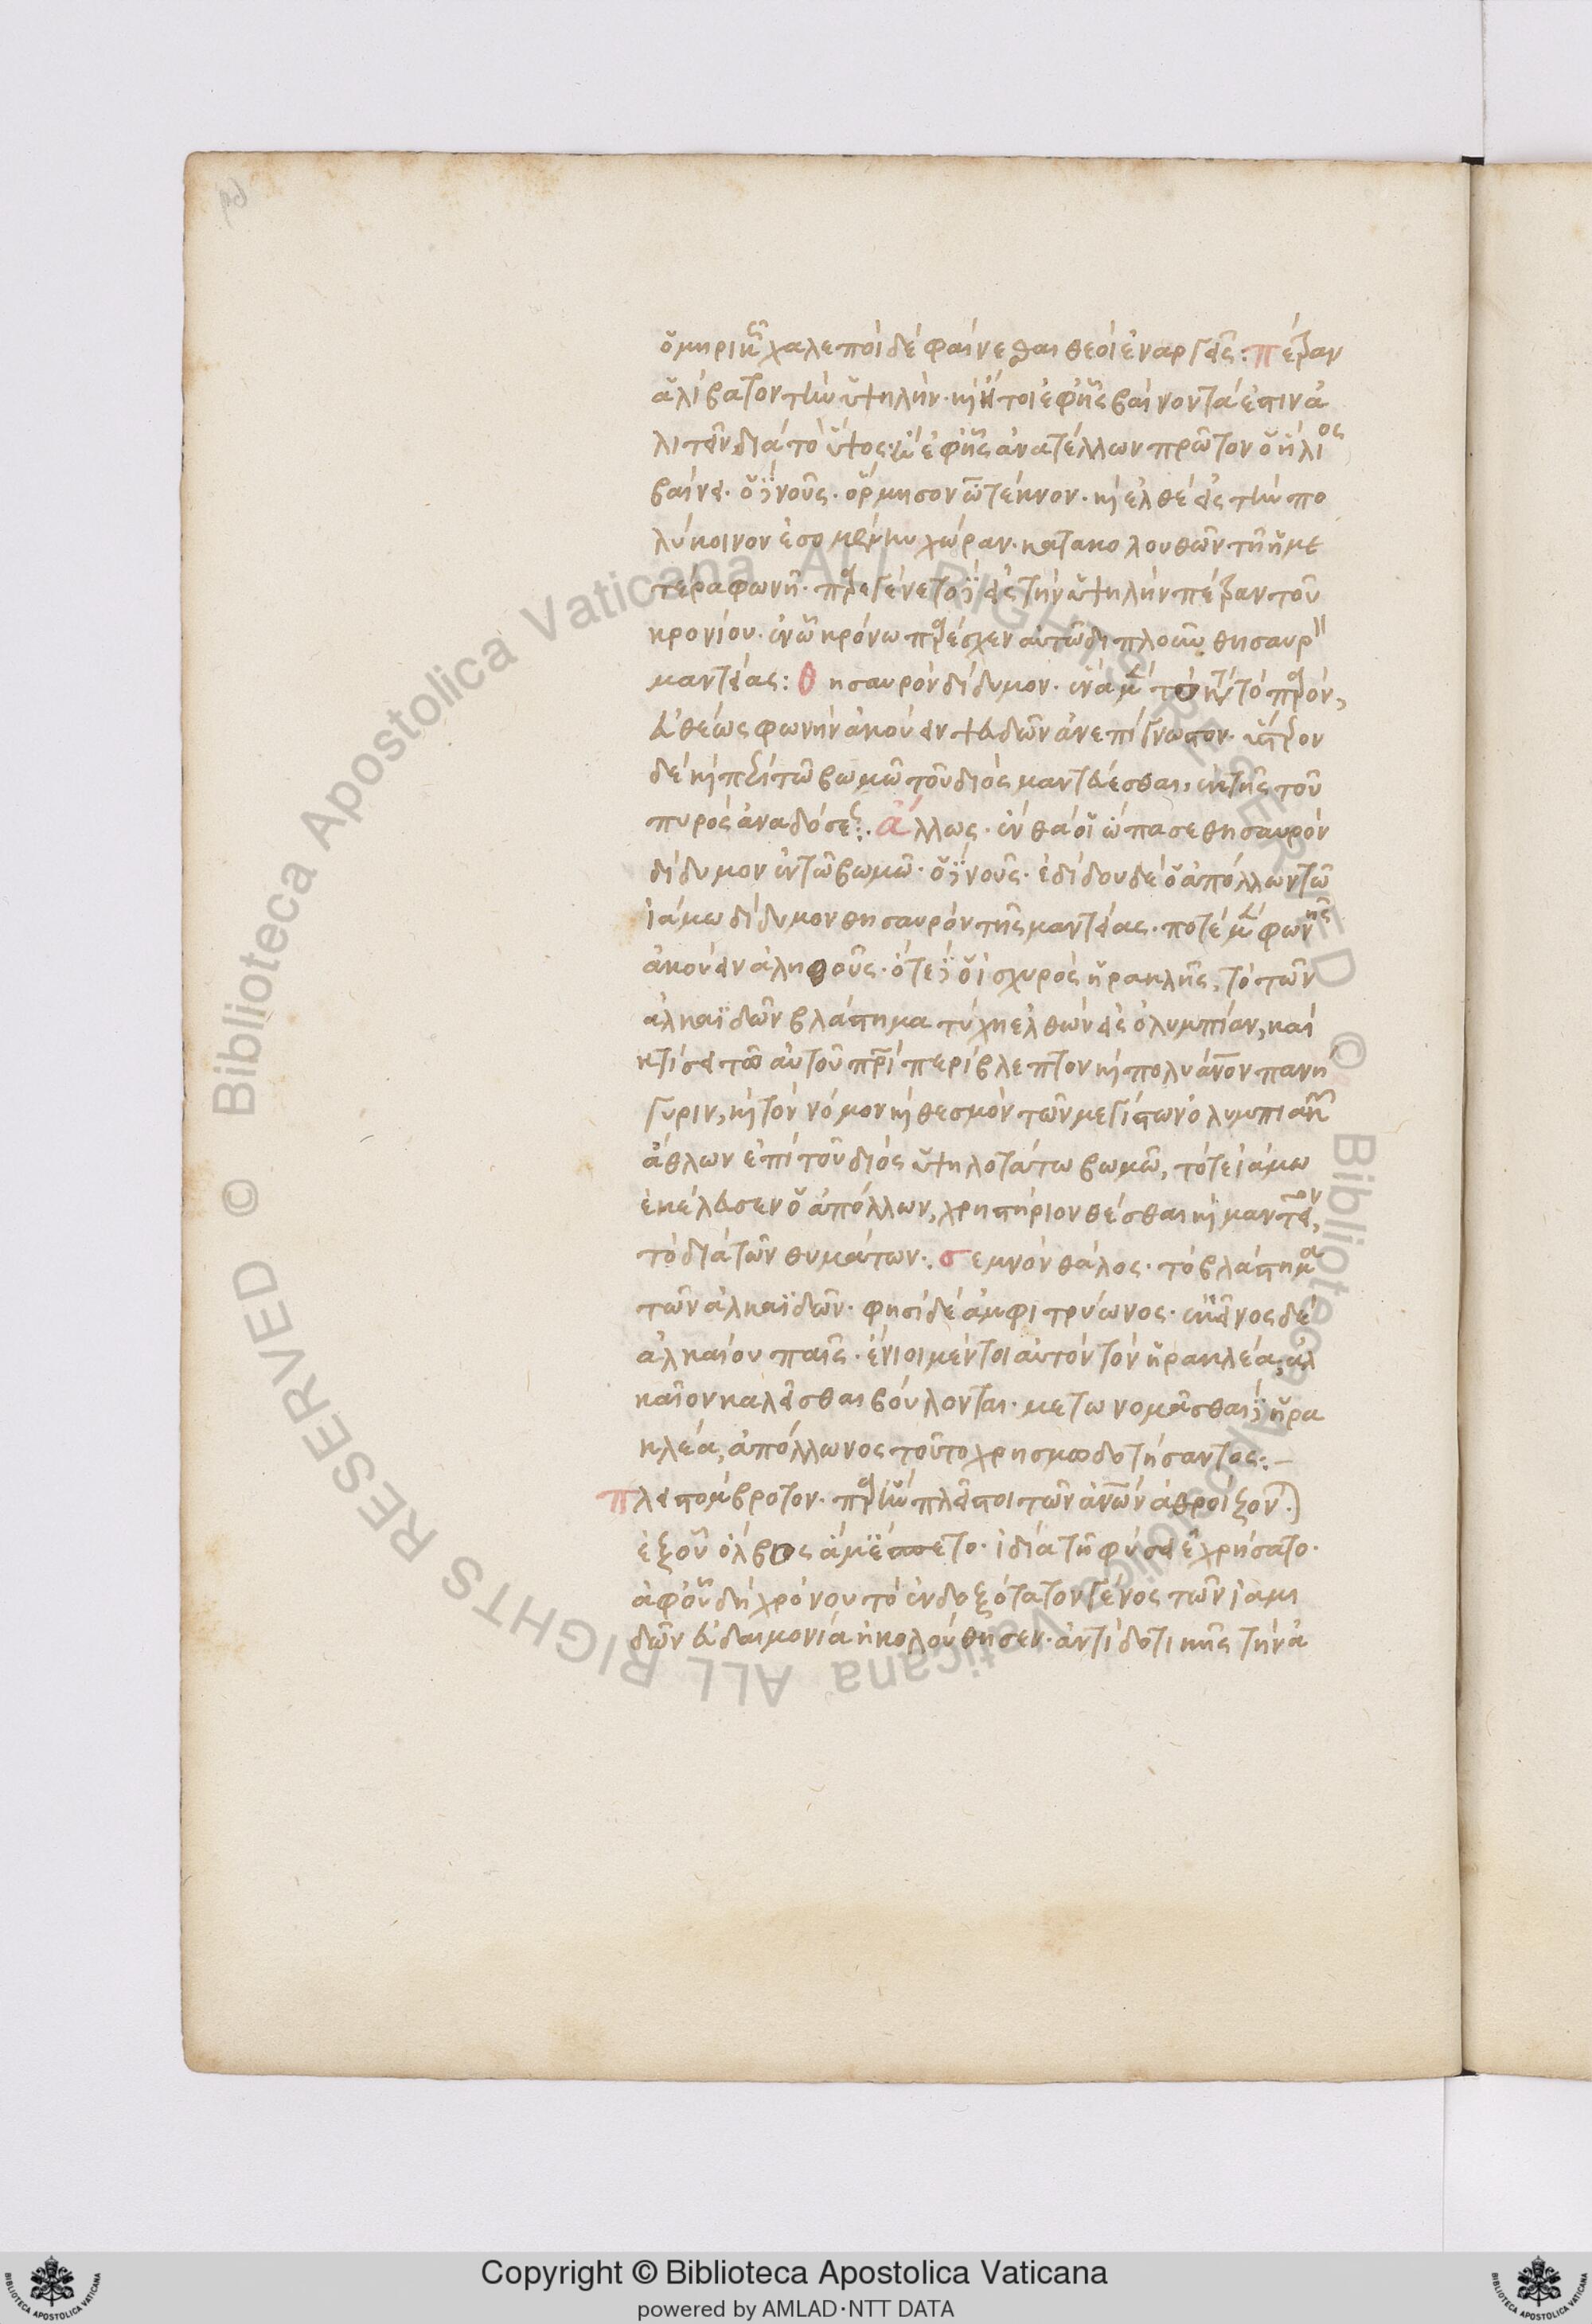 ὁμηρικῶς χαλεποὶ δὲ φαίνεσθαι θεοὶ ἐναργεῖς: πέτραν
ἀλίβατον τὴν ὑψηλήν· ἤτοι ἐφ' ἧς βαίνοντά ἐστιν ἀ
λιτεῖν διὰ τὸ ὕψος· ἢ ἐφ' ἧς ἀνατέλλων πρῶτον ὁ ἥλιος
βαίνει· ὁ νοῦς· ὅρμησον ὦ τέκνον· καὶ ἐλθὲ εἰς τὴν πο
λύκοινον ἐσομένην χώραν· κατακολουθῶν τῇ ἡμε
τέρα φωνῇ· παρεγένετο εἰς τὴν ὑψηλὴν πέτραν τοῦ
κρονίου· ἐν ᾧ χρόνω παρέσχεν αὐτῶ διπλοῦν θησαυρὸν
μαντείας: θησαυρὸν δίδυμον· ἕνα μὲν τὸ κατὰ τὸ παρὸν,
εὐθέως φωνὴν ἀκούειν ψευδῶν ἀνεπίγνωστον· ὕστερον
δὲ καὶ ἐπὶ τῶ βωμῶ τοῦ διὸς μαντεύεσθαι, ἐκ τῆς τοῦ
πυρὸς ἀναδόσεως: ἄλλως· ἔνθα οἱ ὤπασε θησαυρὸν
δίδυμον ἐν τῶ βωμῶ· ὁ νοῦς· ἐδίδου δὲ ὁ ἀπόλλων τῶ
ἰάμω δίδυμον θησαυρὸν τῆς μαντείας· ποτὲ μὲν φωνῆς
ἀκούειν ἀληθοῦς· ὅτε ὁ ἰσχυρὸς ἡρακλῆς, τὸ τῶν
ἀλκαϊδῶν βλάστημα τύχη ἐλθὼν εἰς ὀλυμπίαν, καὶ
κτίσει τῶ αὐτοῦ πατρὶ περίβλεπτον καὶ πολυάνθρωπον πανή
γυριν, καὶ τὸν νόμον καὶ θεσμὸν τῶν μεγίστων ὀλυμπιακῶν
ἄθλων ἐπὶ τοῦ διὸς ὑψηλοτάτω βωμῶ, τότε ἰάμω
ἐκέλευσεν ὁ ἀπόλλων, χρηστήριον θέσθαι καὶ μαντεῖον,
τὸ διὰ τῶν θυμάτων· σεμνὸν θάλος· τὸ βλάστημα
τῶν ἀλκαϊδῶν· φησὶ δὲ ἀμφιτρύωνος· ἐκεῖνος δὲ
ἀλκαίου παῖς· ἔνιοι μέντοι αὐτὸν τὸν ἡρακλέα, ἀλ
καῖον καλεῖσθαι βούλονται· μετωνομάσθαι ἡρα
κλέα, ἀπόλλωνος τοῦτο χρησμωδοτήσαντος:—
πλειστόμβροτον· παρ' ἣν πλεῖστοι τῶν ἀνθρώπων ἀθροίζονται·
ἐξ οὗ ὄλβος ἅμ' ἕσπετο· ἰδία τῇ φύσει ἐχρήσατο·
ἀφ' οὗ δὴ χρόνου τὸ ἐνδοξότατον γένος τῶν ἰαμι
δῶν εὐδαιμονία ἠκολούθησεν· ἀντιδοτικῆς τὴν ἀ
Copyright © Biblioteca Apostolica Vaticana
powered by AMLAD·NTT DATA